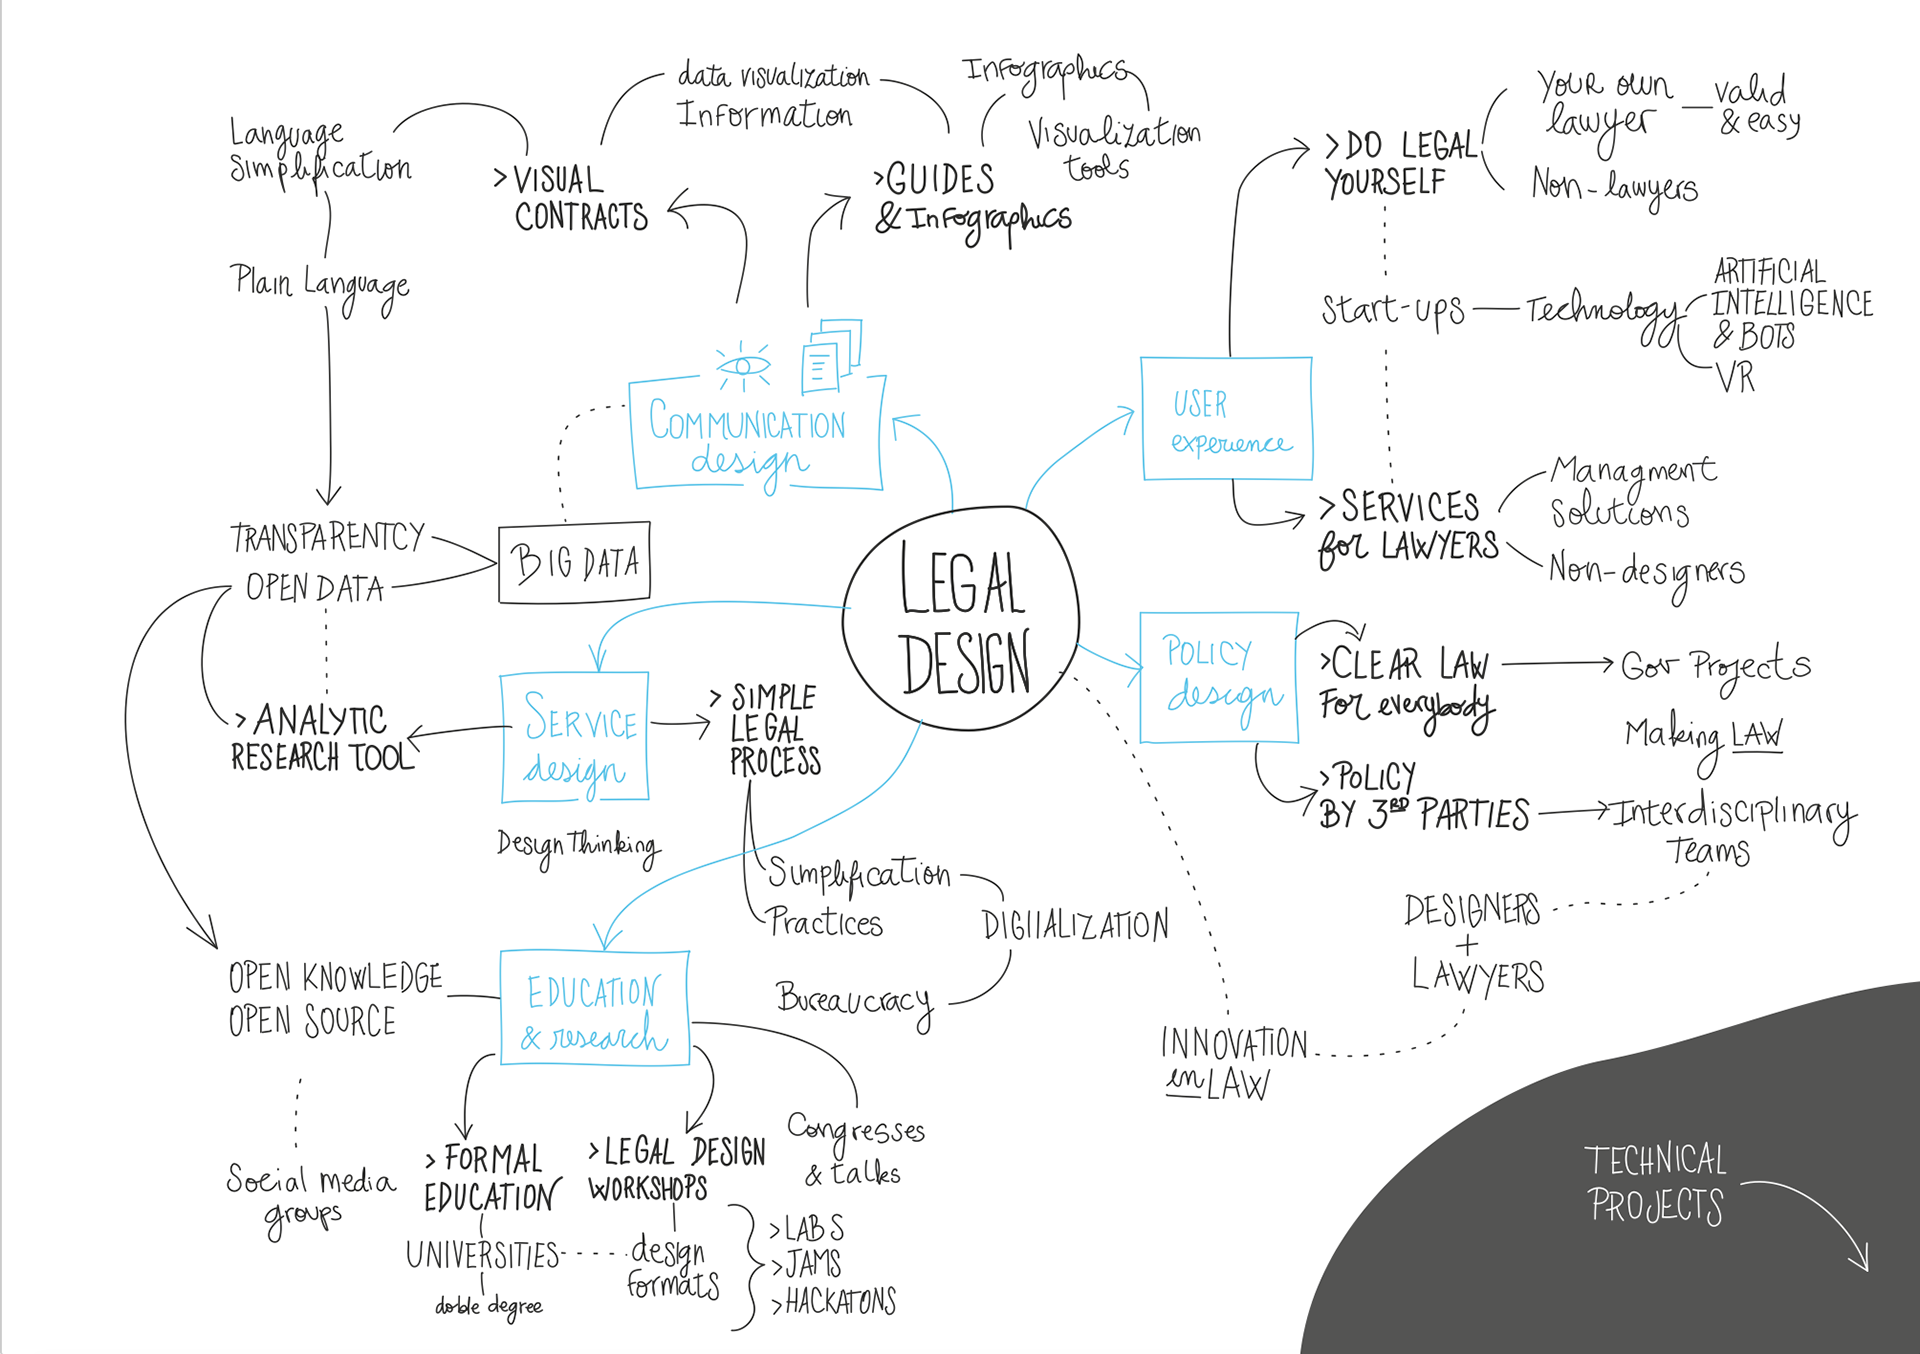 Language
Simplification
Plain Language
> VISUAL
CONTRACTS
data visualization
Information
Infographics
Visualization
tools
> GUIDES
& Infographics
> DO LEGAL
YOURSELF
Your own
lawyer
valid
& easy
Non-lawyers
Start-ups
Technology
ARTIFICIAL
INTELLIGENCE
& BOTS
VR
COMMUNICATION
design
USER
experience
> SERVICES
for LAWYERS
Managment
Solutions
Non-designers
TRANSPARENTCY
OPEN DATA
BIG DATA
LEGAL
DESIGN
POLICY
design
> CLEAR LAW
For everybody
Gov Projects
Making LAW
> POLICY
BY 3RD PARTIES
Interdisciplinary
Teams
DESIGNERS
+
LAWYERS
INNOVATION
en LAW
> ANALYTIC
RESEARCH TOOL
SERVICE
design
Design Thinking
> SIMPLE
LEGAL
PROCESS
Simplification
Practices
DIGIIALIZATION
Bureaucracy
OPEN KNOWLEDGE
OPEN SOURCE
EDUCATION
& research
Social media
groups
> FORMAL
EDUCATION
UNIVERSITIES
doble degree
> LEGAL DESIGN
WORKSHOPS
design
formats
Congresses
& talks
> LABS
> JAMS
> HACKATONS
TECHNICAL
PROJECTS